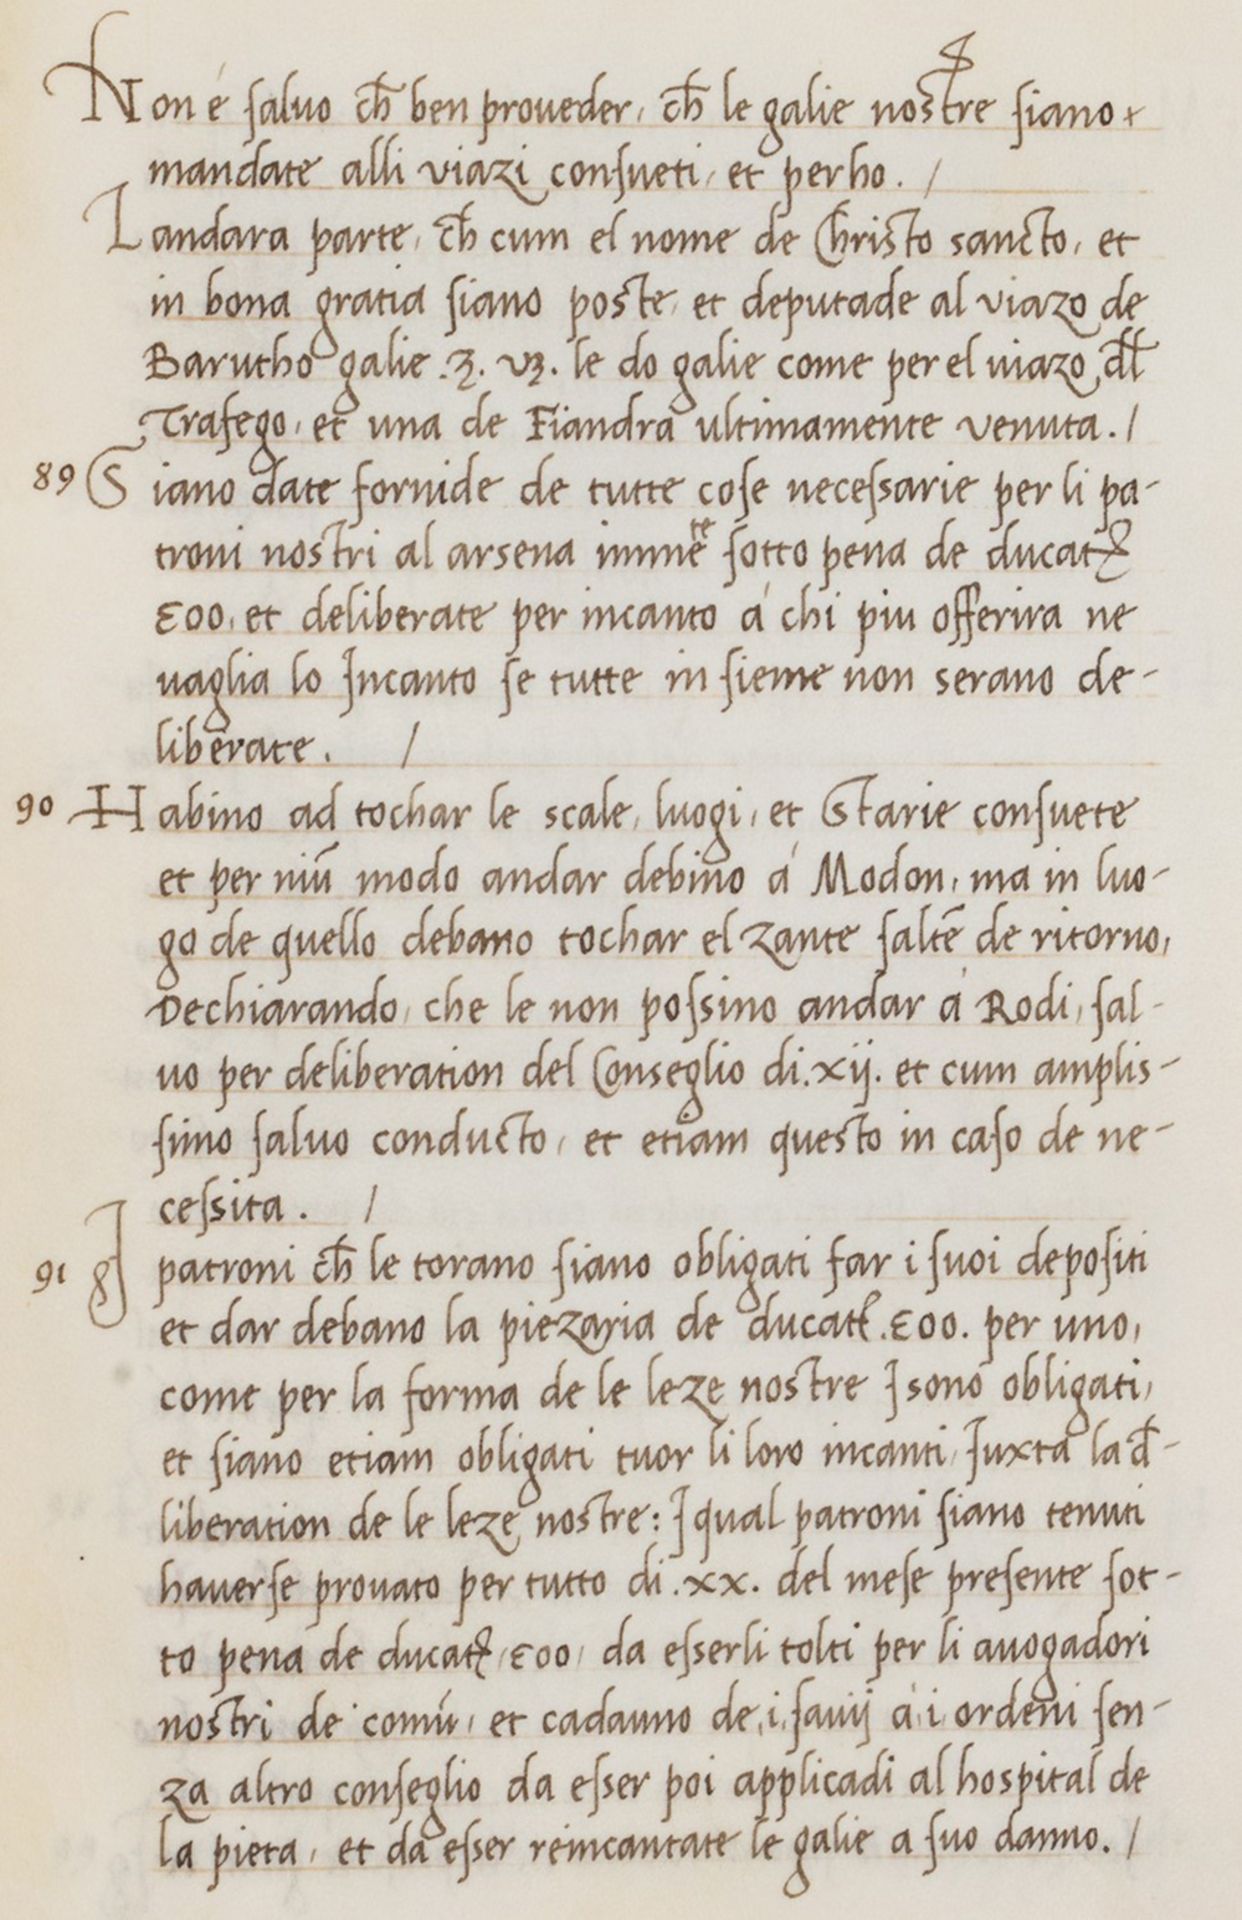 Non é saluo ch̄ ben proueder, ch̄ le galie nostre siano
mandate alli viazi consueti, et perho. /
Landara parte, ch̄ cum el nome de Christo sancto, et
in bona gratia siano poste, et deputade al viazo de
Barutho galie .3. vz. le do galie come per el uiazo dl̄
Trafego, et una de Fiandra ultimamente venuta. /
89 Siano date fornide de tutte cose necessarie per li pa-
troni nostri al arsena immēte sotto pena de ducatꝫ
500, et deliberate per incanto á chi piu offerira ne
uaglia lo Incanto se tutte in sieme non serano de-
liberate. /
90 Habino ad tochar le scale, luogi, et Starie consuete
et per niū modo andar debino á Modon, ma in luo-
go de quello debano tochar el Zante saltē de ritorno,
Dechiarando, che le non possino andar á Rodi, sal-
uo per deliberation del Conseglio di .xij. et cum amplis-
simo saluo conducto, et etiam questo in caso de ne-
cessita. /
91 I patroni ch̄ le torano siano obligati far i suoi depositi
et dar debano la piezaria de ducatꝭ .500. per uno,
come per la forma de le leze nostre I sono obligati,
et siano etiam obligati tuor li loro incanti, Iuxta la d̄-
liberation de le leze nostre: I qual patroni siano tenuti
hauerse prouato per tutto di .xx. del mese presente sot-
to pena de ducatꝫ, 500, da esserli tolti per li auogadori
nostri de comū, et cadauno de, i, sauij á, i, ordeni sen-
za altro conseglio da esser poi applicadi al hospital de
la pieta, et da esser reincantate le galie a suo danno. /